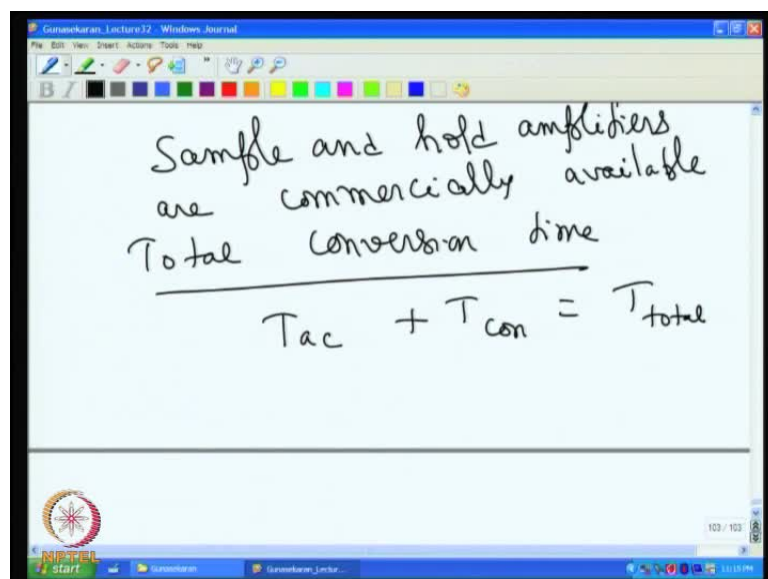 Gunasekaran_Lecture32 - Windows Journal
File Edit View Insert Actions Tools Help
B I
Sample and hold amplifiers
are commercially available
Total conversion time
Tac + Tcon = Ttotal
103 / 103
NPTEL
start Gunasekaran Gunasekaran_Lectur... 11:15 PM